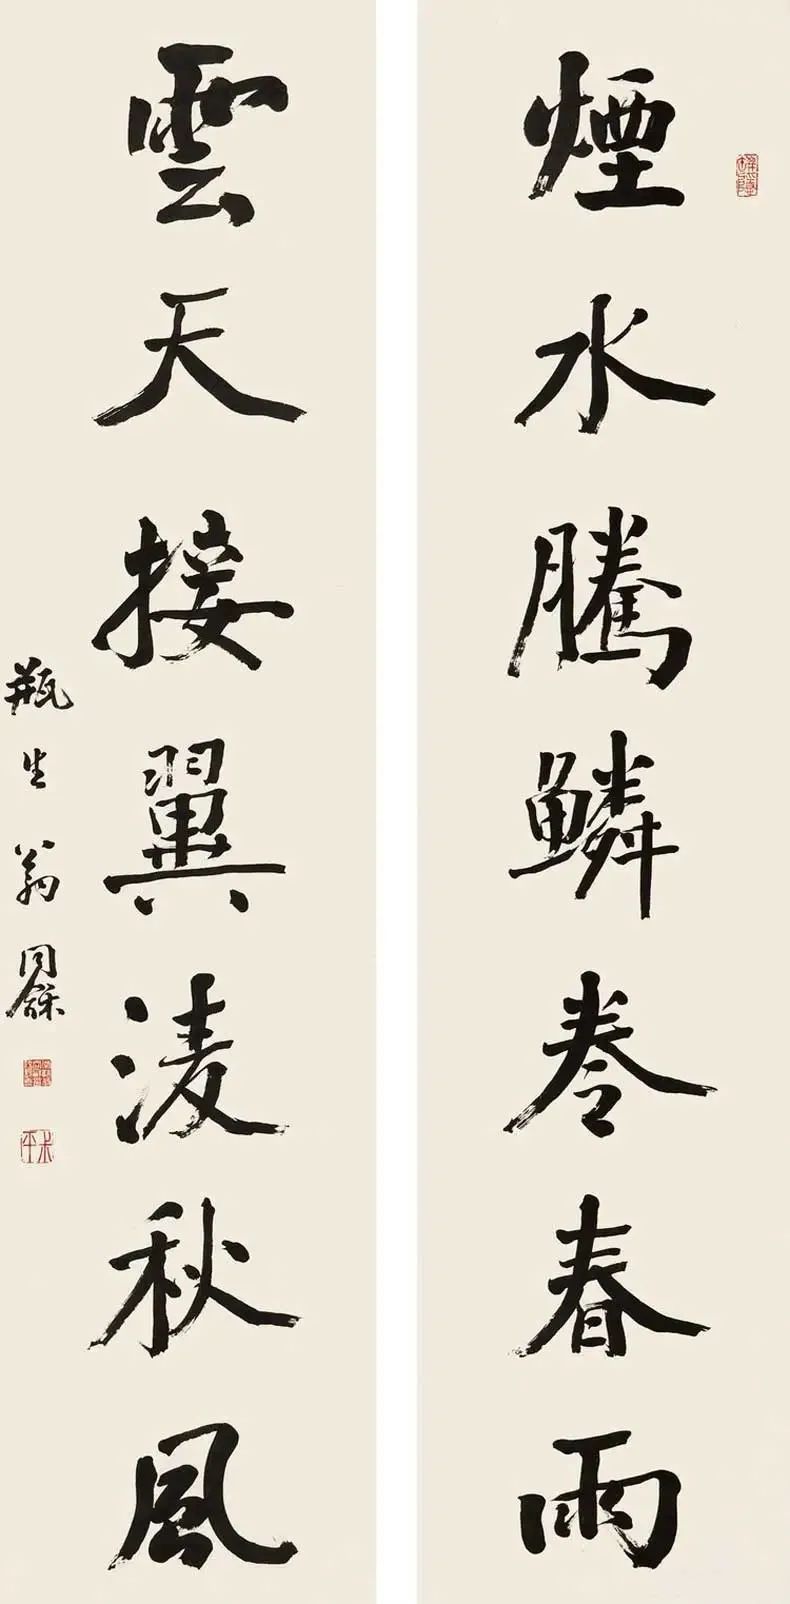 煙水騰鱗卷春雨
雲天接翼凌秋風
瓶生翁同龢